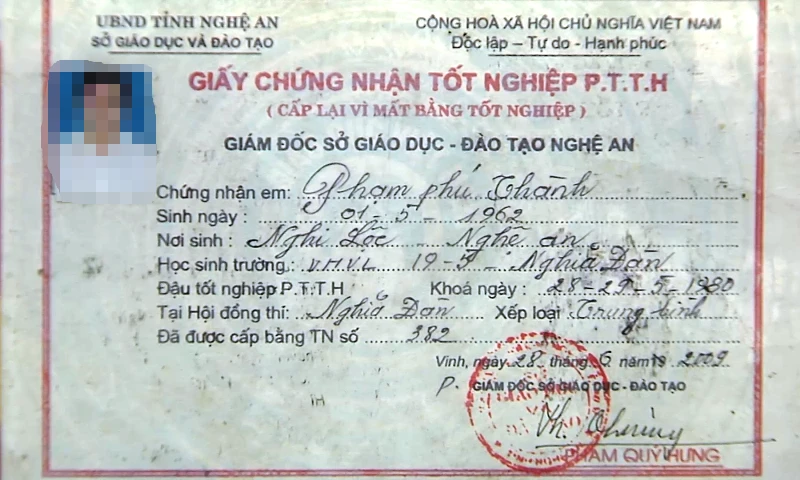 UBND TỈNH NGHỆ AN
SỞ GIÁO DỤC VÀ ĐÀO TẠO
CỘNG HOÀ XÃ HỘI CHỦ NGHĨA VIỆT NAM
Độc lập – Tự do - Hạnh phúc
GIẤY CHỨNG NHẬN TỐT NGHIỆP P.T.T.H
( CẤP LẠI VÌ MẤT BẰNG TỐT NGHIỆP )
GIÁM ĐỐC SỞ GIÁO DỤC - ĐÀO TẠO NGHỆ AN
Chứng nhận em: Phạm phú Thành
Sinh ngày : 01 - 5 - 1962
Nơi sinh : Nghi Lộc - Nghệ an
Học sinh trường : V.H.V.L 19-5 - Nghĩa Đàn
Đậu tốt nghiệp P.T.T.H Khoá ngày : 28-29-5-1980
Tại Hội đồng thi: Nghĩa Đàn Xếp loại Trung bình
Đã được cấp bằng TN số 382
Vinh, ngày 28 tháng 6 năm 2009
P. GIÁM ĐỐC SỞ GIÁO DỤC - ĐÀO TẠO
PHẠM QUÝ HƯNG